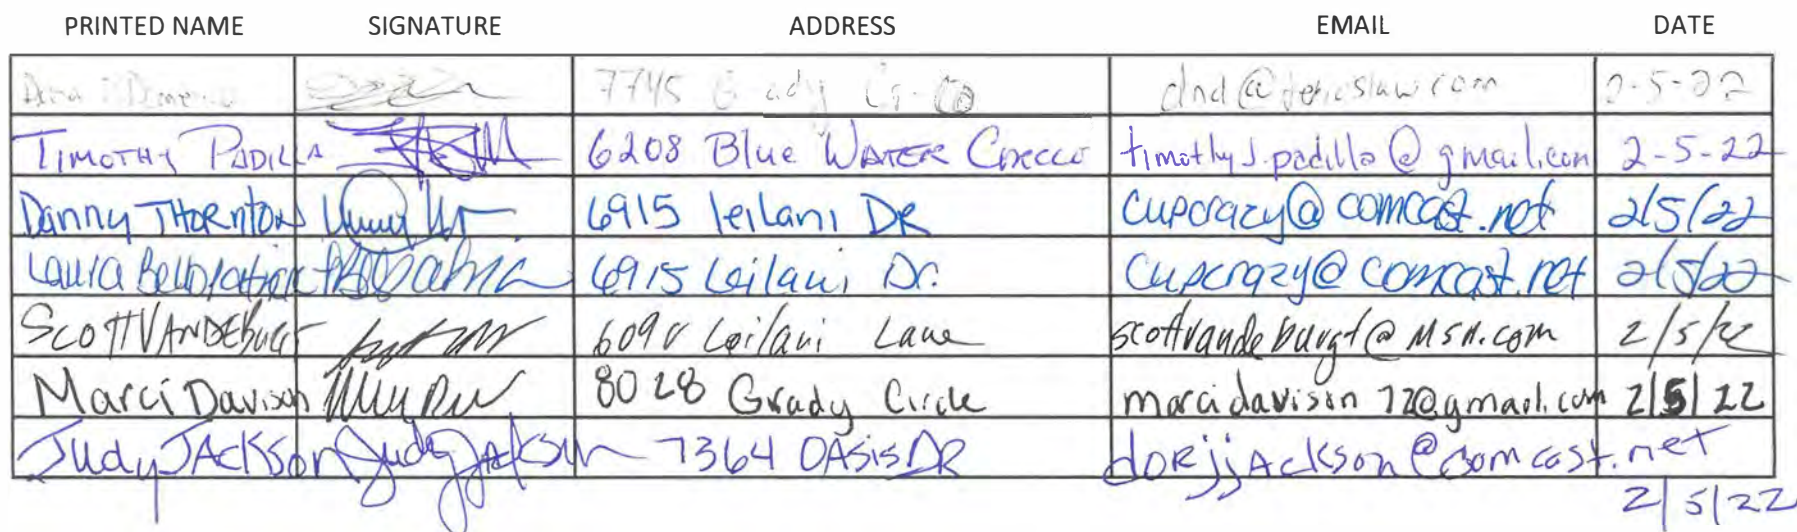 PRINTED NAME SIGNATURE ADDRESS EMAIL DATE
7745 Grady 2-5-22
TIMOTHY PADILLA 6208 Blue WATER CIRCLE timothyj.padilla@gmail.com 2-5-22
Danny THORNTON 6915 leilani DR cupcrazy@comcast.net 2/5/22
Laura 6915 Leilani Dr. cupcrazy@comcast.net 2/5/22
SCOTT VANDEBURGT Leilani Lane scottvandeburgt@msn.com 2/5/22
Marci Davison 8028 Grady Circle marcidavison72@gmail.com 2/5/22
Judy JACKSON Judy Jackson 7364 OASIS DR dorjjackson@comcast.net
2/5/22